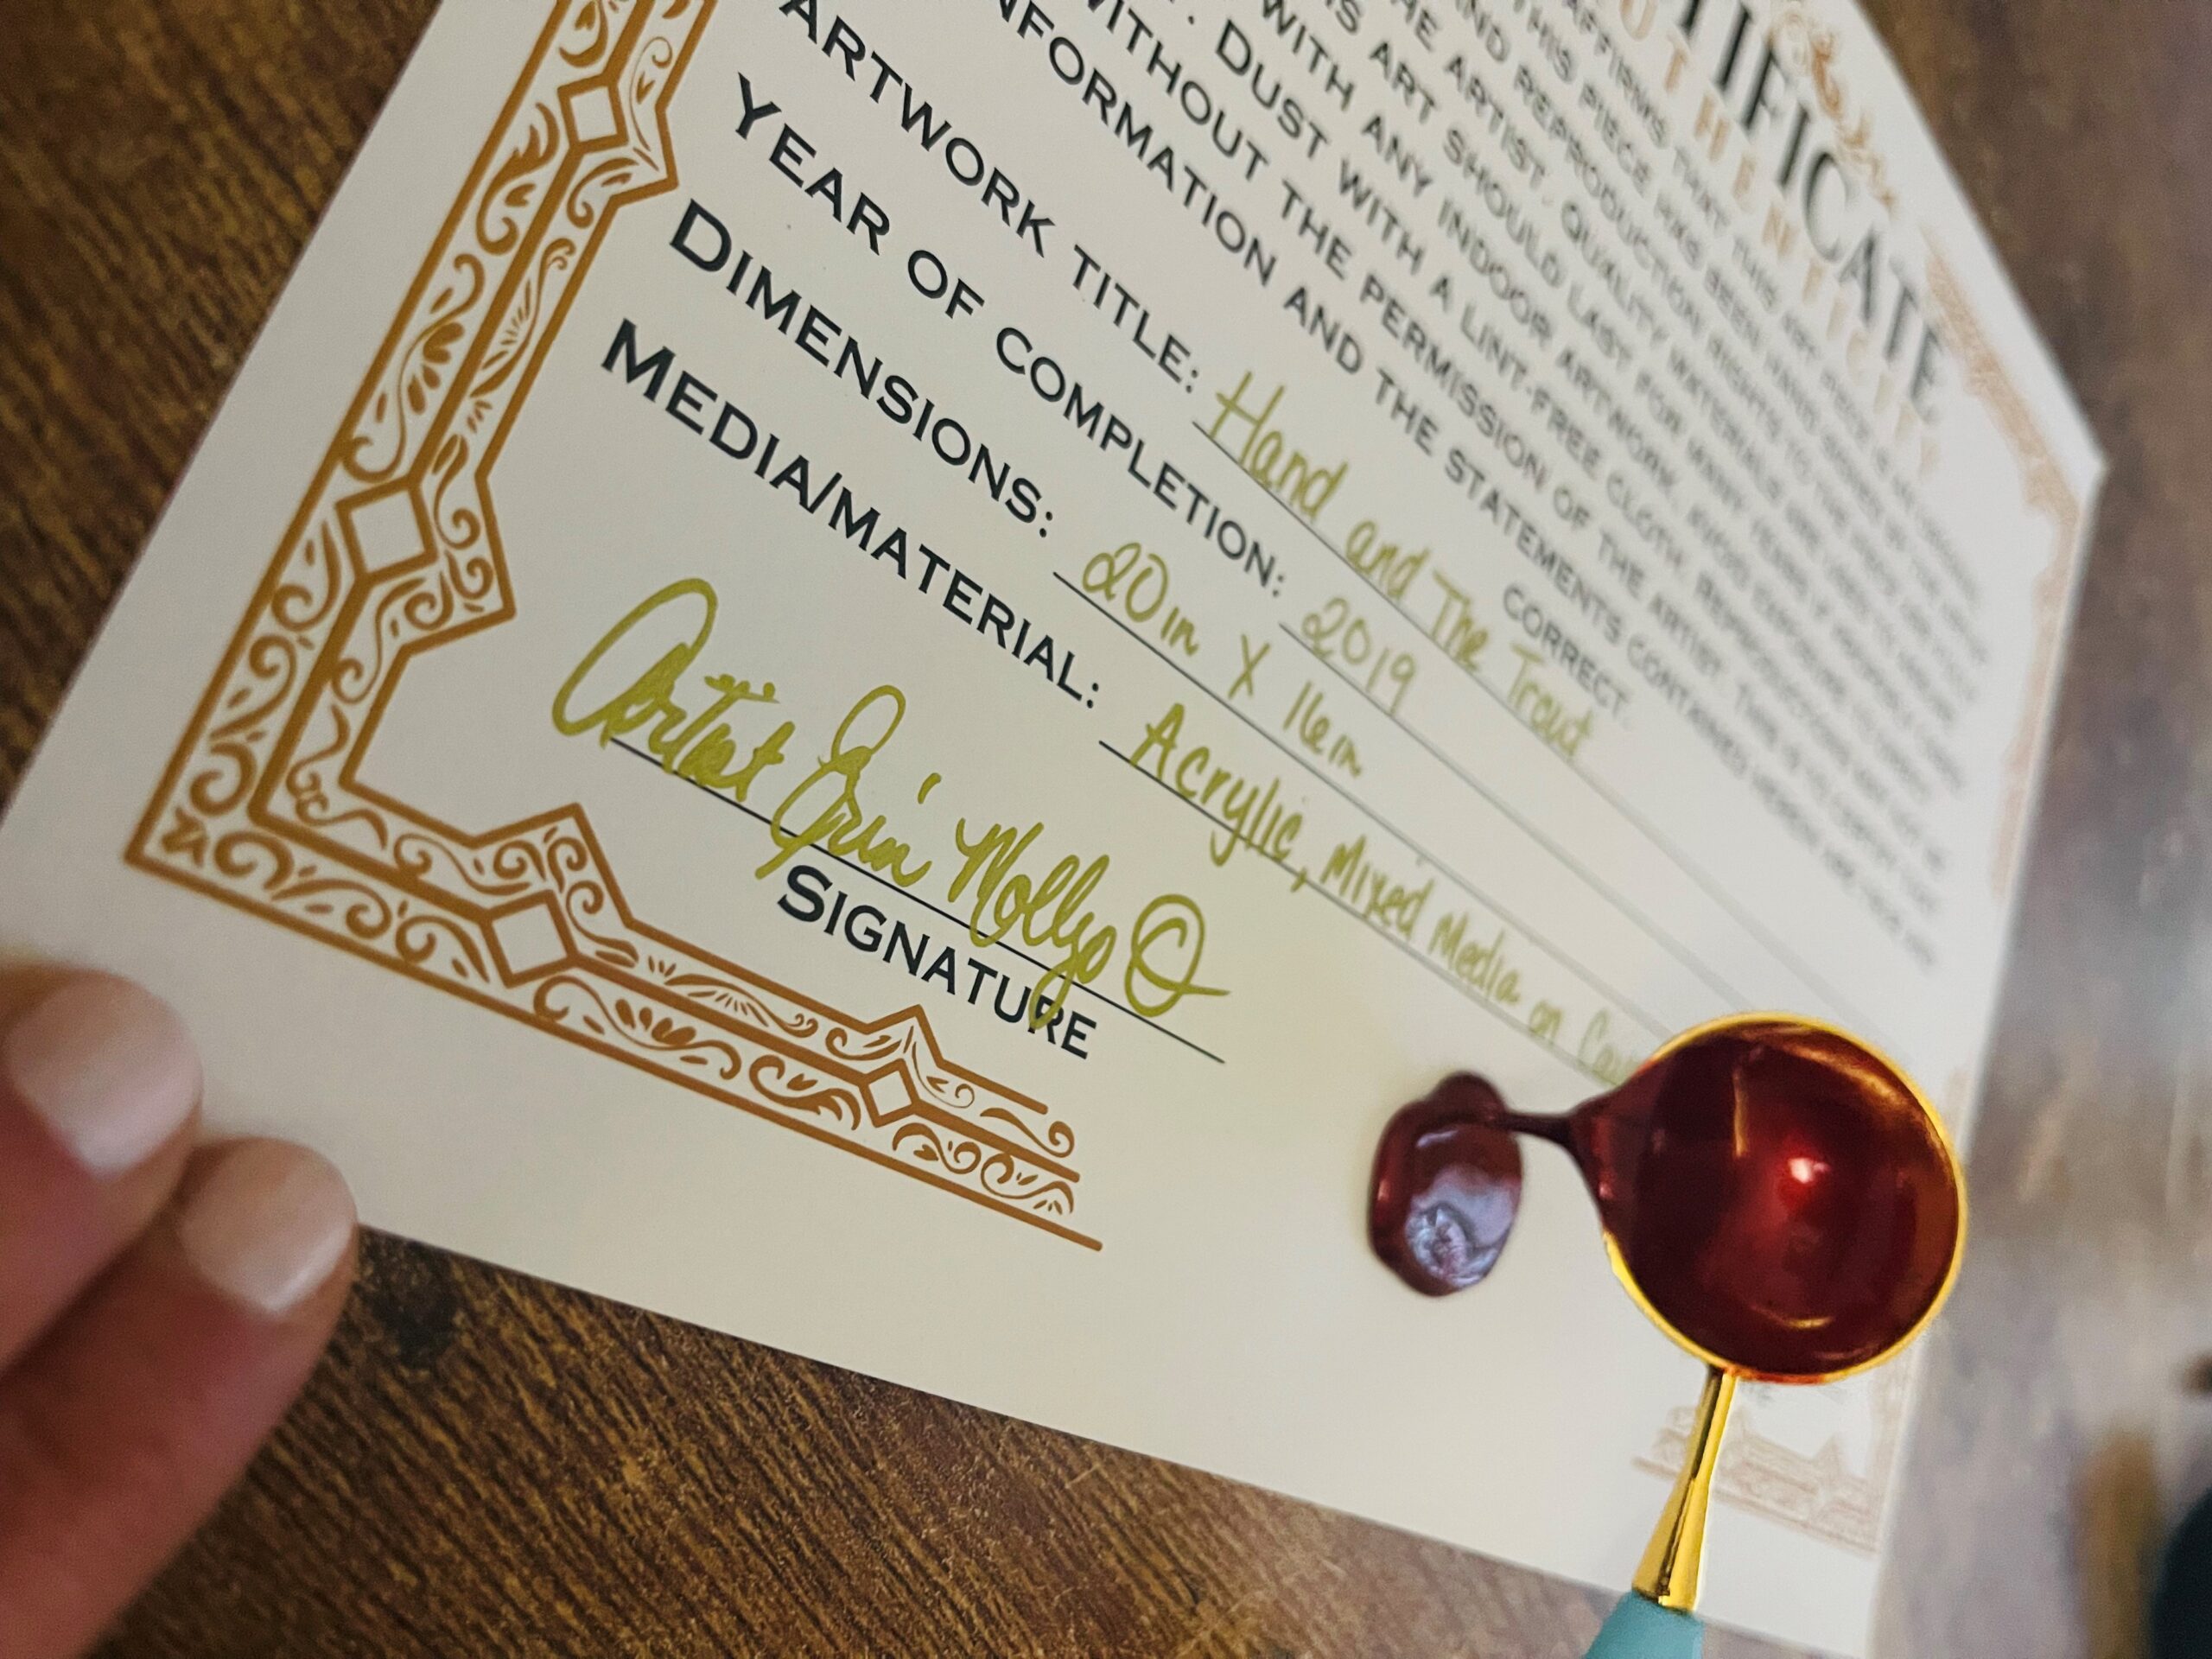 TIFICATE
AUTHENTICITY
AFFIRMS THAT THIS ART PIECE IS AN
THIS PIECE HAS BEEN HAND SIGNED BY THE ARTIST
AND REPRODUCTION RIGHTS TO THE
THE ARTIST. QUALITY MATERIALS ARE
IS ART SHOULD LAST FOR MANY YEARS IF
WITH ANY INDOOR ARTWORK, AVOID EXPOSURE TO DIRECT
. DUST WITH A LINT-FREE CLOTH. REPRODUCTIONS ARE NOT
WITHOUT THE PERMISSION OF THE ARTIST. THIS IS TO CERTIFY THAT
NFORMATION AND THE STATEMENTS CONTAINED HEREIN ARE TRUE AND
CORRECT.
ARTWORK TITLE: Hand and The Trout
YEAR OF COMPLETION: 2019
DIMENSIONS: 20in X 16in
MEDIA/MATERIAL: Acrylic, Mixed Media on
Artist Erin Mollyo
SIGNATURE